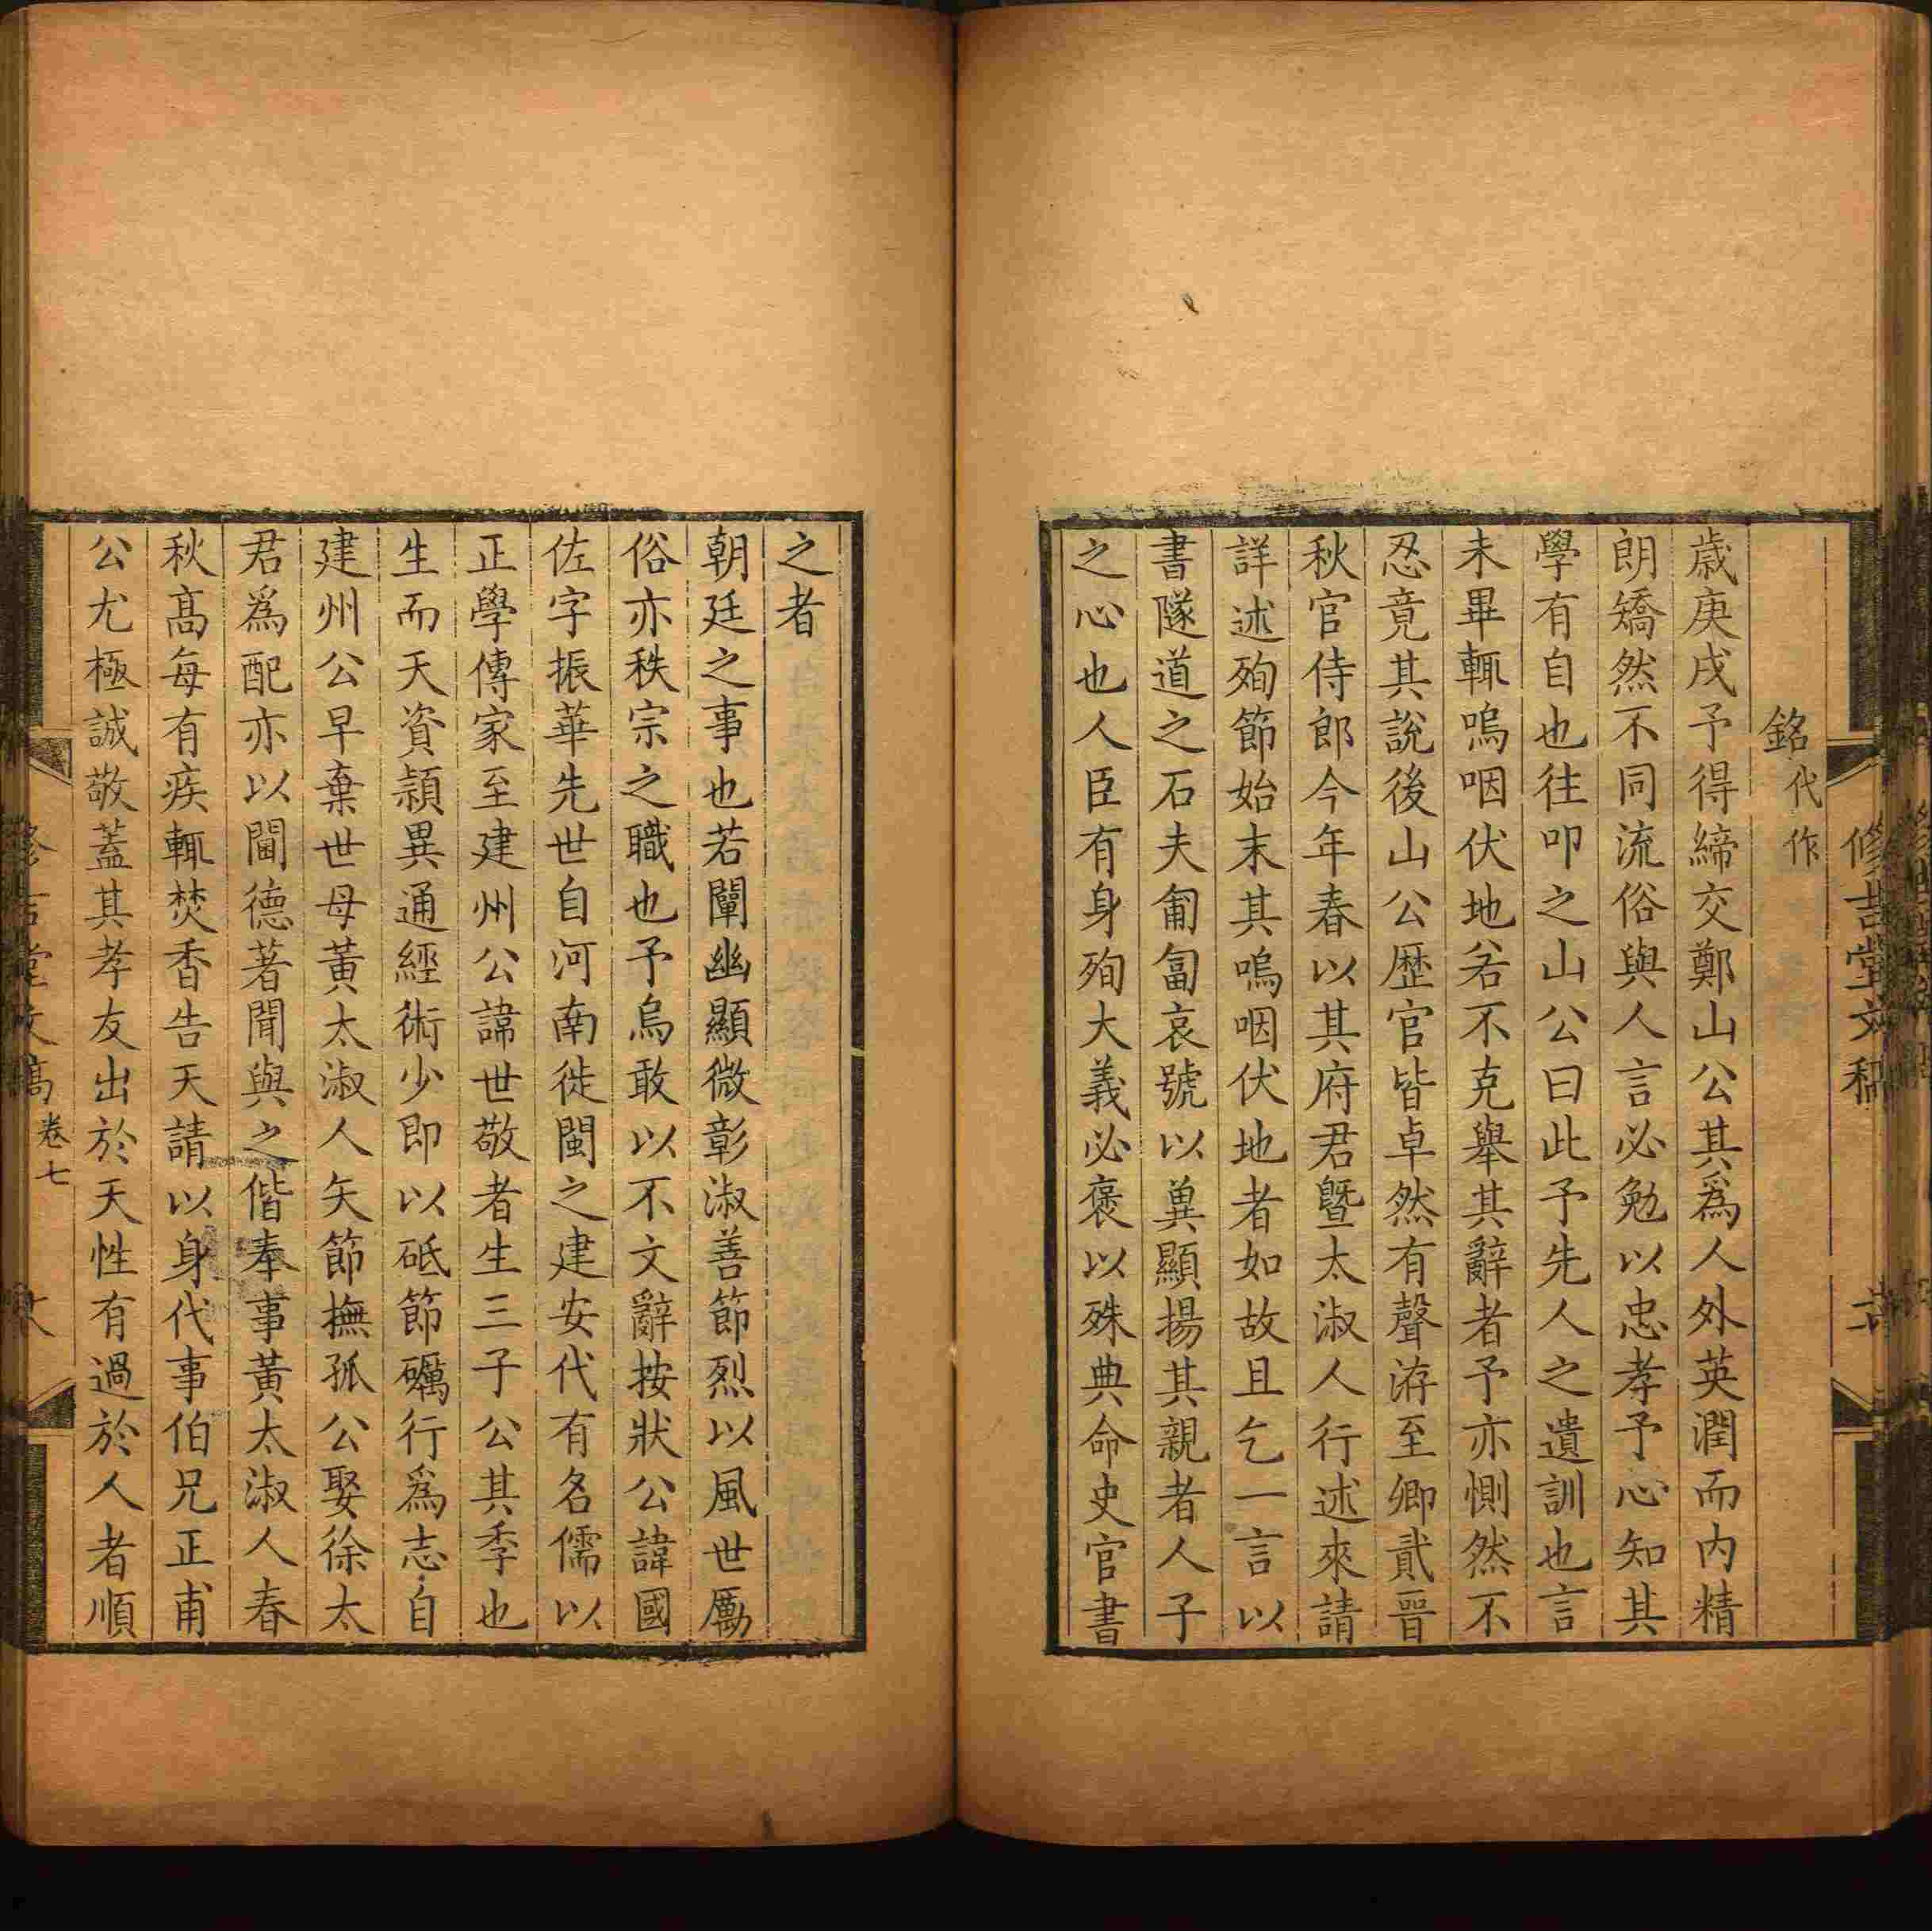 銘代作
歲庚戌予得締交鄭山公其爲人外英潤而內精
朗矯然不同流俗與人言必勉以忠孝予心知其
學有自也往叩之山公曰此予先人之遺訓也言
未畢輒嗚咽伏地若不克舉其辭者予亦惻然不
忍竟其說後山公歷官皆卓然有聲洊至卿貳晉
秋官侍郎今年春以其府君曁太淑人行述來請
詳述殉節始末其嗚咽伏地者如故且乞一言以
書隧道之石夫匍匐哀號以冀顯揚其親者人子
之心也人臣有身殉大義必褒以殊典命史官書
之者
朝廷之事也若闡幽顯微彰淑善節烈以風世勵
俗亦秩宗之職也予烏敢以不文辭按狀公諱國
佐字振華先世自河南徙閩之建安代有名儒以
正學傳家至建州公諱世敬者生三子公其季也
生而天資頴異通經術少即以砥節礪行爲志自
建州公早棄世母黃太淑人矢節撫孤公娶徐太
君爲配亦以閫德著聞與之偕奉事黃太淑人春
秋髙每有疾輒焚香告天請以身代事伯兄正甫
公尤極誠敬蓋其孝友出於天性有過於人者順
修吉堂文稿
卷七